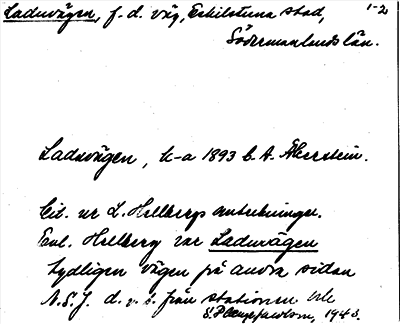 Laduvägen, f. d. väg, Eskilstuna stad, 1-2
Södermanlands län.
Laduvägen, k-a 1893 b. A. Åkerstein.
Cit. ur L. Hellbergs anteckningar.
Enl. Hellberg var Laduvägen
tydligen vägen på andra sidan
N.S.J. d. v. s. från stationen
1943.